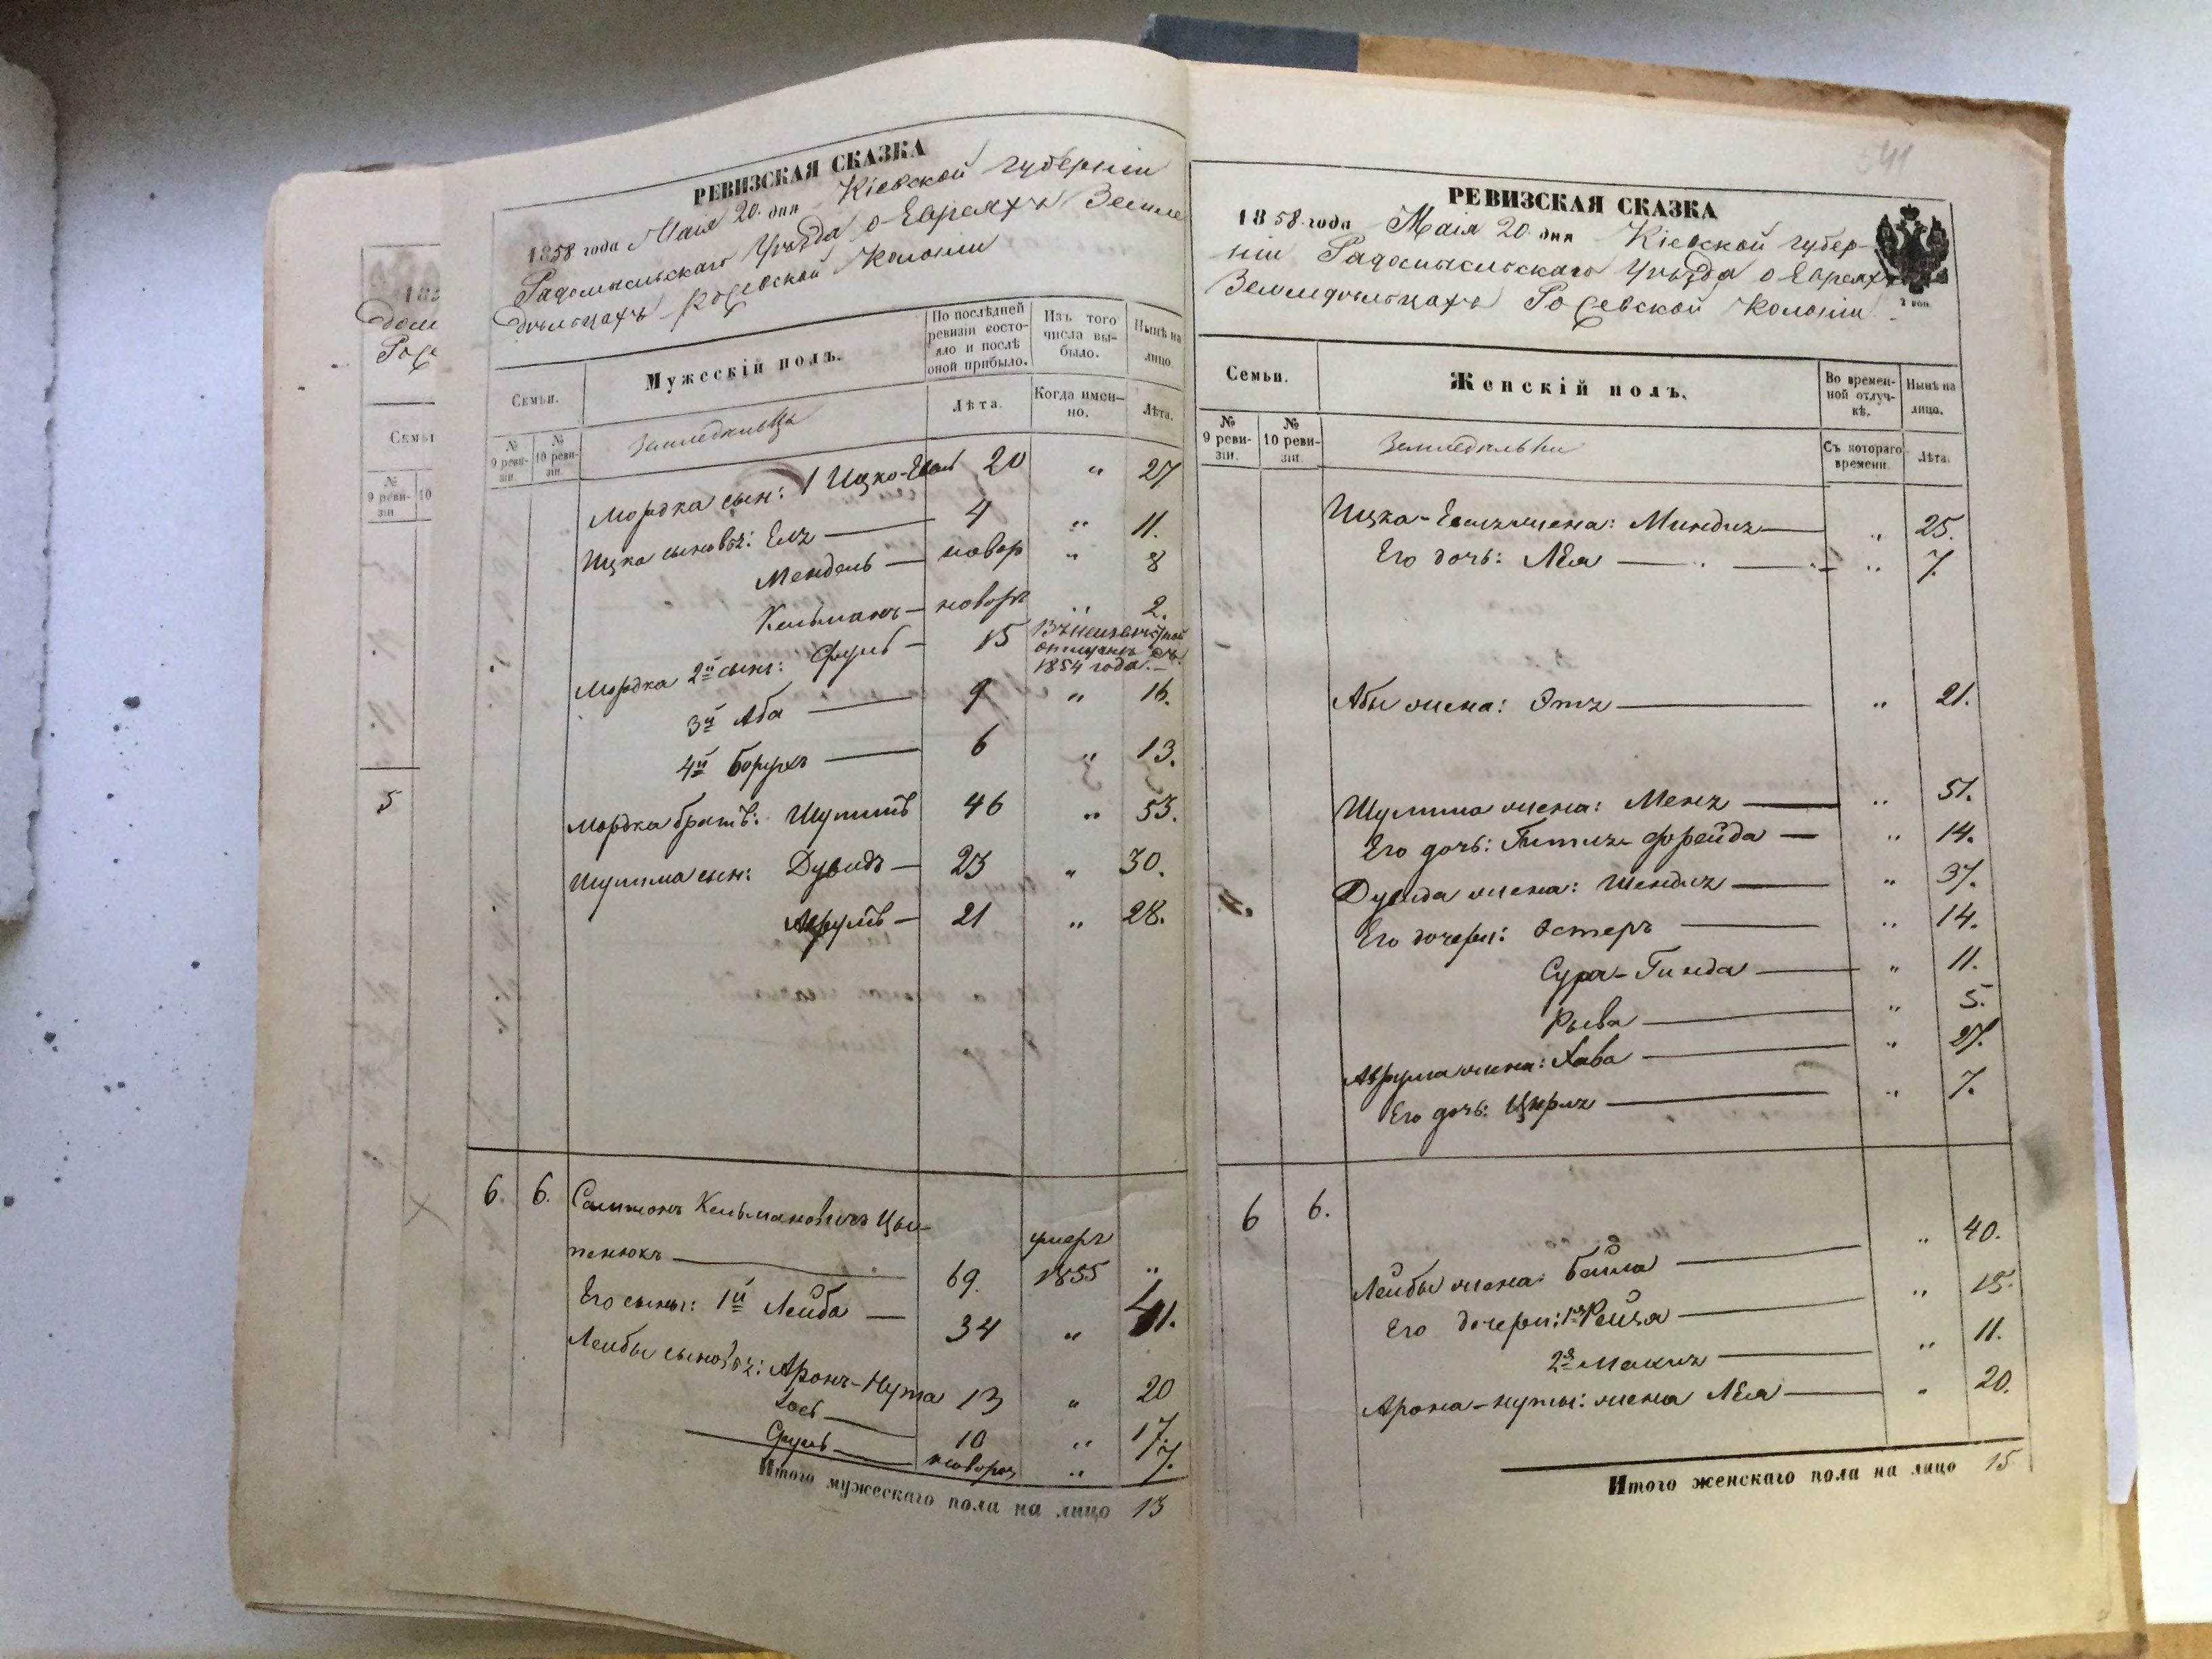 183
доль
Рос
Семьи
№
9 реви-
зіи
10
5
РЕВИЗСКАЯ СКАЗКА
1858 года Маія 20 дня Кіевской губерніи
Радомысльскаго Уѣзда о Евреяхъ Земле
дѣльцахъ колоніи
Семьи.
№
9 реви-
зіи.
№
10 реви-
зіи.
Мужескій полъ.
Земледѣльцы
По послѣдней
ревизіи состо-
яло и послѣ
оной прибыло.
Лѣта.
Изъ того
числа вы-
было.
Когда имен-
но.
Нынѣ на
лицо
Лѣта.
Мордка сын: 1 Ицко- 20 " 27
Ицка сыновья: Елъ — 4 " 11.
Мендель — новор " 8
Кельманъ — новорг " 2.
Мордка 2й сынъ: Сруль — 15
отлучкѣ съ
1854 года. —
3й Аба — 9 " 16.
4й Борухъ — 6 " 13.
Мордка братъ: 46 " 53.
сын: Дувидъ — 23 " 30.
Аврумъ — 21 " 28.
6. 6. Кельмановичъ Цы-
пенюкъ — 69. умеръ 1855 "
Его сынъ: 1й Лейба — 34 " 41.
Лейбы сыновья: Аронъ-Нута 13 " 20
10 " 17.
Сруль — новорог " 7.
Итого мужескаго пола на лицо 13
541
РЕВИЗСКАЯ СКАЗКА
1858 года Маія 20 дня Кіевской губер-
ніи Радомысльскаго Уѣзда о Евреяхъ
Земледѣльцахъ колоніи
Семьи.
№
9 реви-
зіи.
№
10 реви-
зіи.
Женскій полъ.
Земледѣльки
Во времен-
ной отлуч-
кѣ.
Съ котораго
времени.
Нынѣ на
лицо.
Лѣта.
жена: Миндля — " 25.
Его дочь: Лея — " 7.
Абы жена: Этя — " 21.
жена: Меня — " 51.
Его дочь: Фрейда — " 14.
Дувида жена: Шендля — " 37.
Его дочери: Эстеръ — " 14.
Сура-Гинда — " 11.
Рыва — " 5.
Аврума жена: Хава — " 27.
Его дочь: Цирля — " 7.
6 6.
Лейбы жена: Бейла — " 40.
Его дочери: 1я — " 15.
2я — " 11.
Арона-Нуты: жена Лея — " 20.
Итого женскаго пола на лицо 15